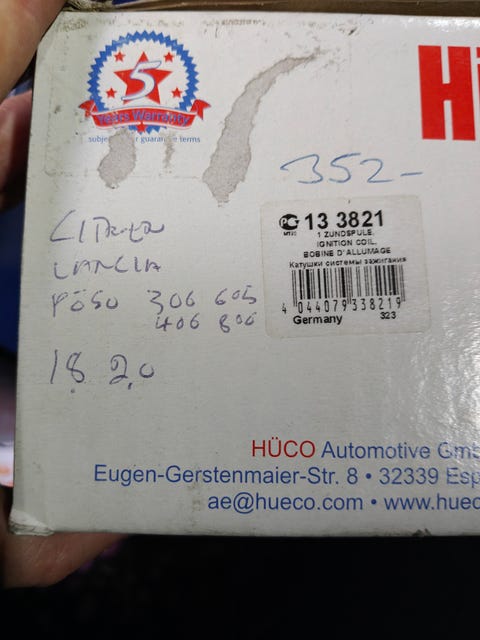 5
Years Warranty
HÜ
352-
CITROEN
LANCIA
306 605
406 806
18 2.0
PG 13 3821
1 ZÜNDSPULE,
IGNITION COIL,
BOBINE D'ALLUMAGE
Катушки системы зажигания
4 044079 338219
Germany 323
HÜCO Automotive Gmb
Eugen-Gerstenmaier-Str. 8 • 32339 Esp
ae@hueco.com • www.huec